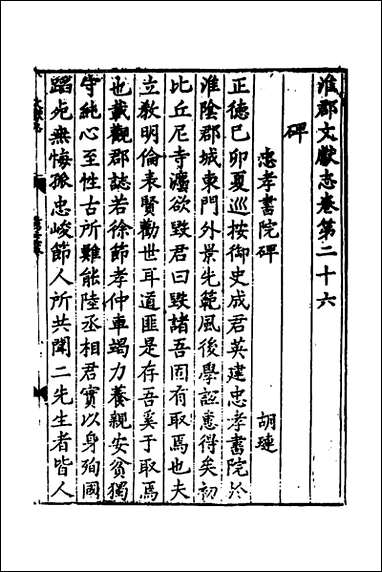 淮郡文獻志卷第二十六
碑
忠孝書院碑 胡璉
正德己卯夏巡按御史成君英建忠孝書院於
淮陰郡城東門外景先範風後學誼惠得矣初
比丘尼寺瀆欲毀君曰毀諸吾固有取焉也夫
立教明倫表賢勸世耳道匪是存吾奚于取焉
也載觀郡誌若徐節孝仲車竭力養親安貧獨
守純心至性古所難能陸丞相君實以身殉國
蹈死無悔孤忠峻節人所共聞二先生者皆人